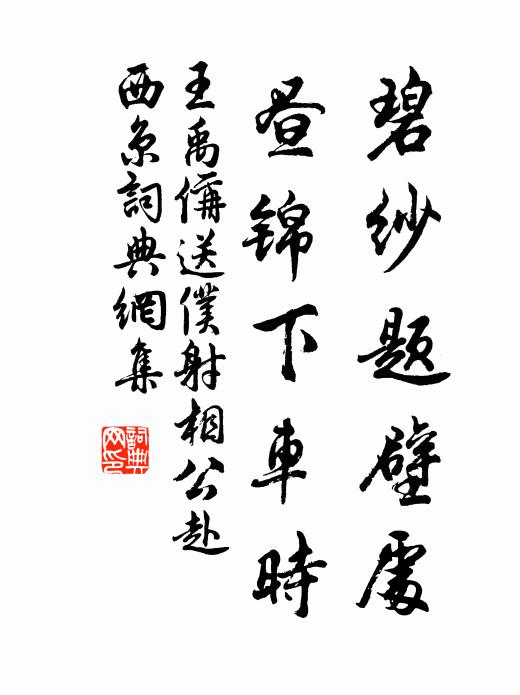 碧紗题壁處
昼锦下車時
王禹偁送僕射相公赴
西京詞典網集
詞典网印